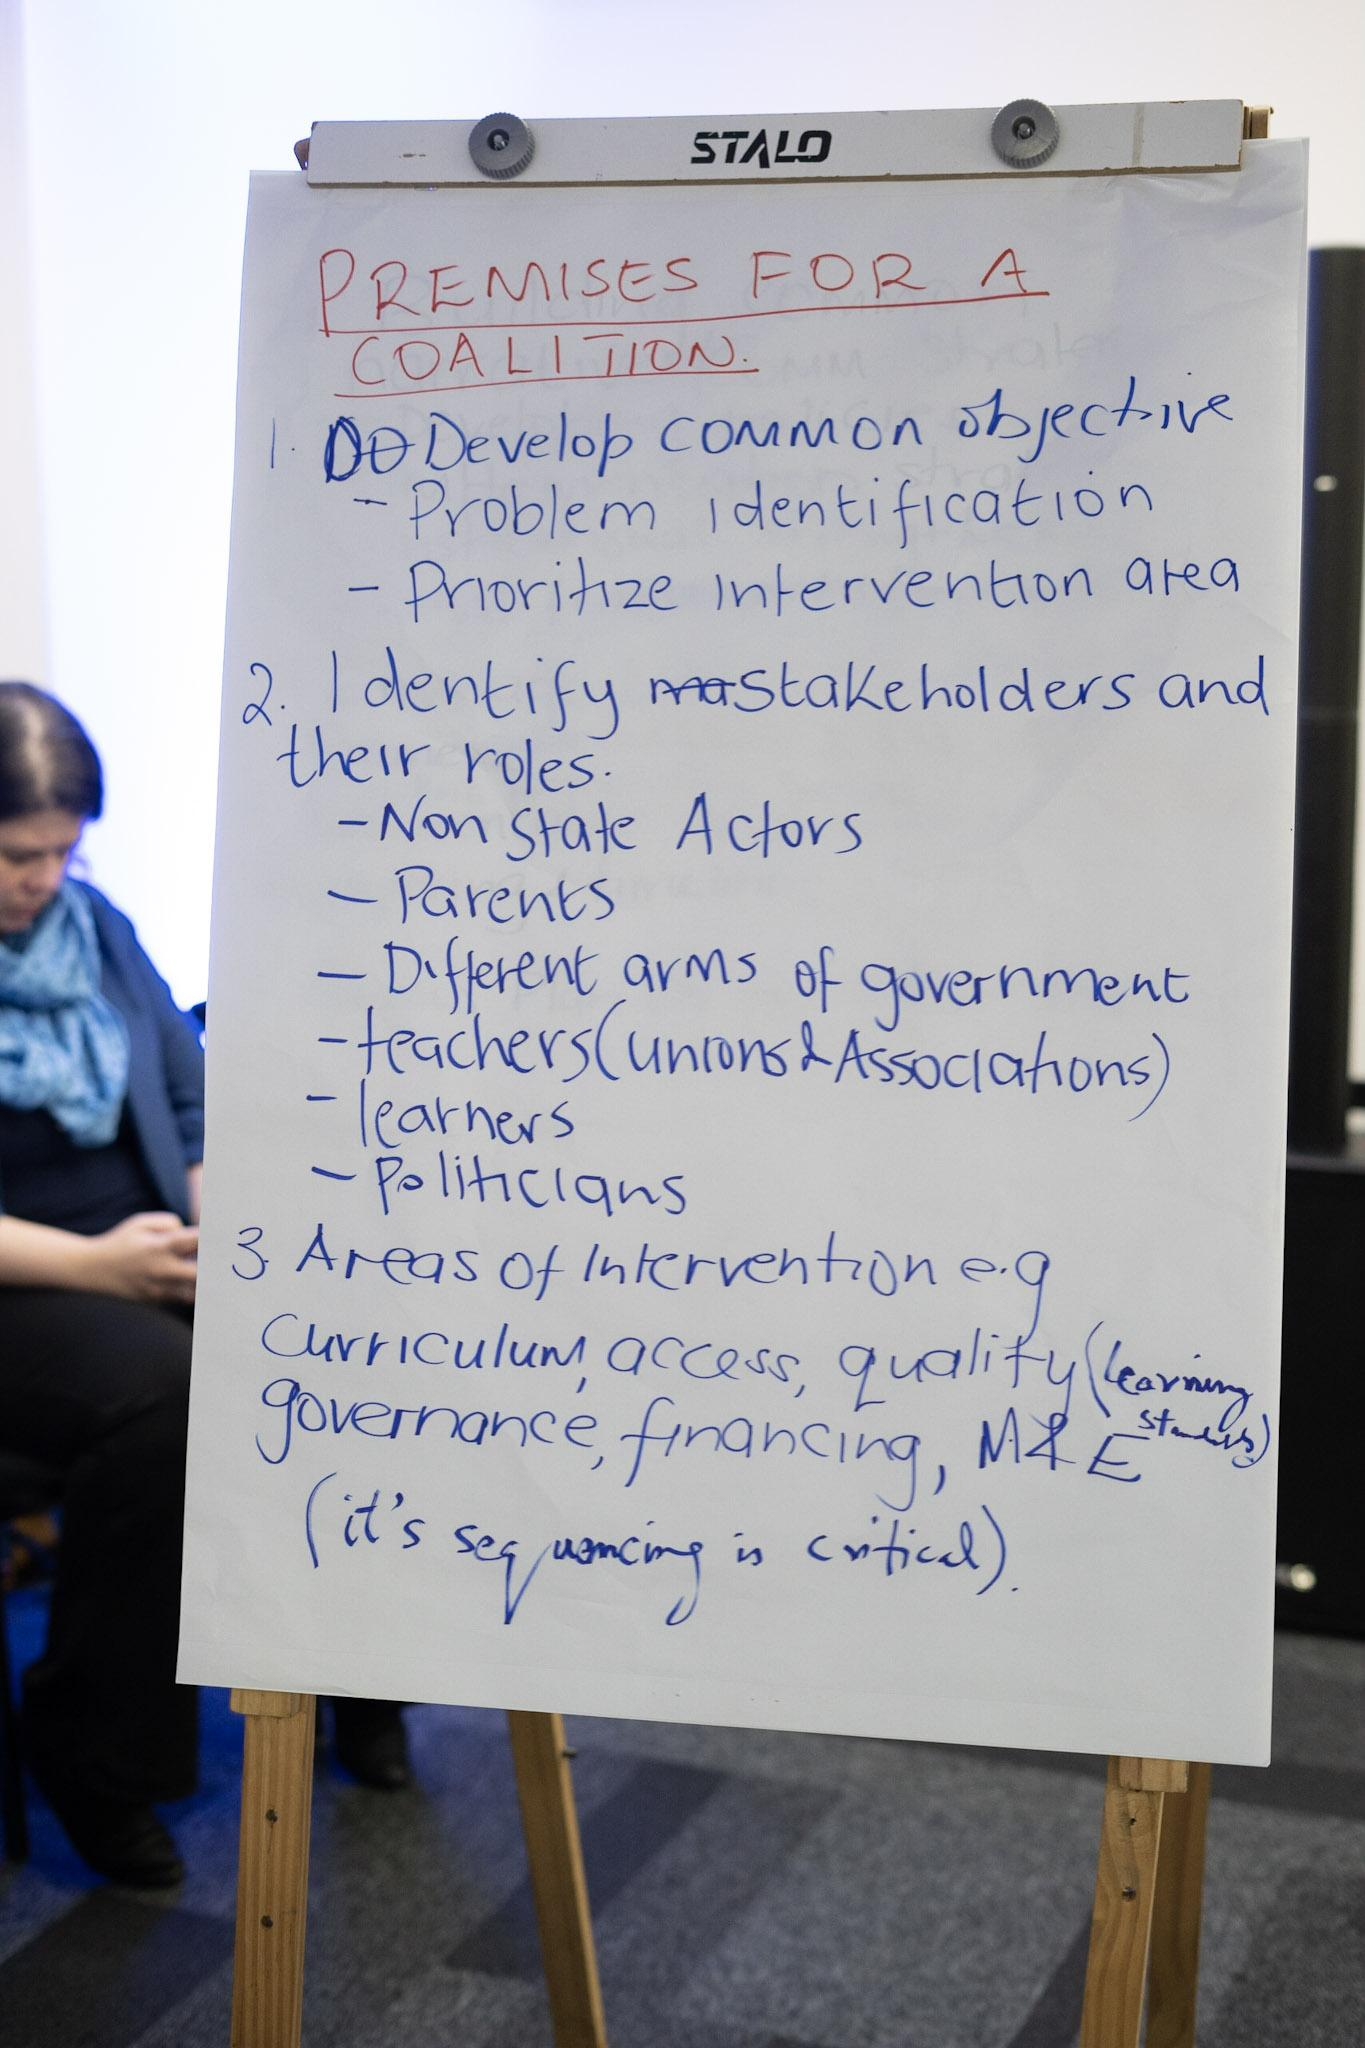 STALO
PREMISES FOR A
COALITION.
1. Develop common objective
- Problem identification
- Prioritize intervention area
2. Identify stakeholders and
their roles.
- Non State Actors
- Parents
- Different arms of government
- teachers (unions & Associations)
- learners
- Politicians
3. Areas of Intervention e.g
Curriculum, access, quality (learning
standards)
governance, financing, M & E
(it's sequencing is critical).